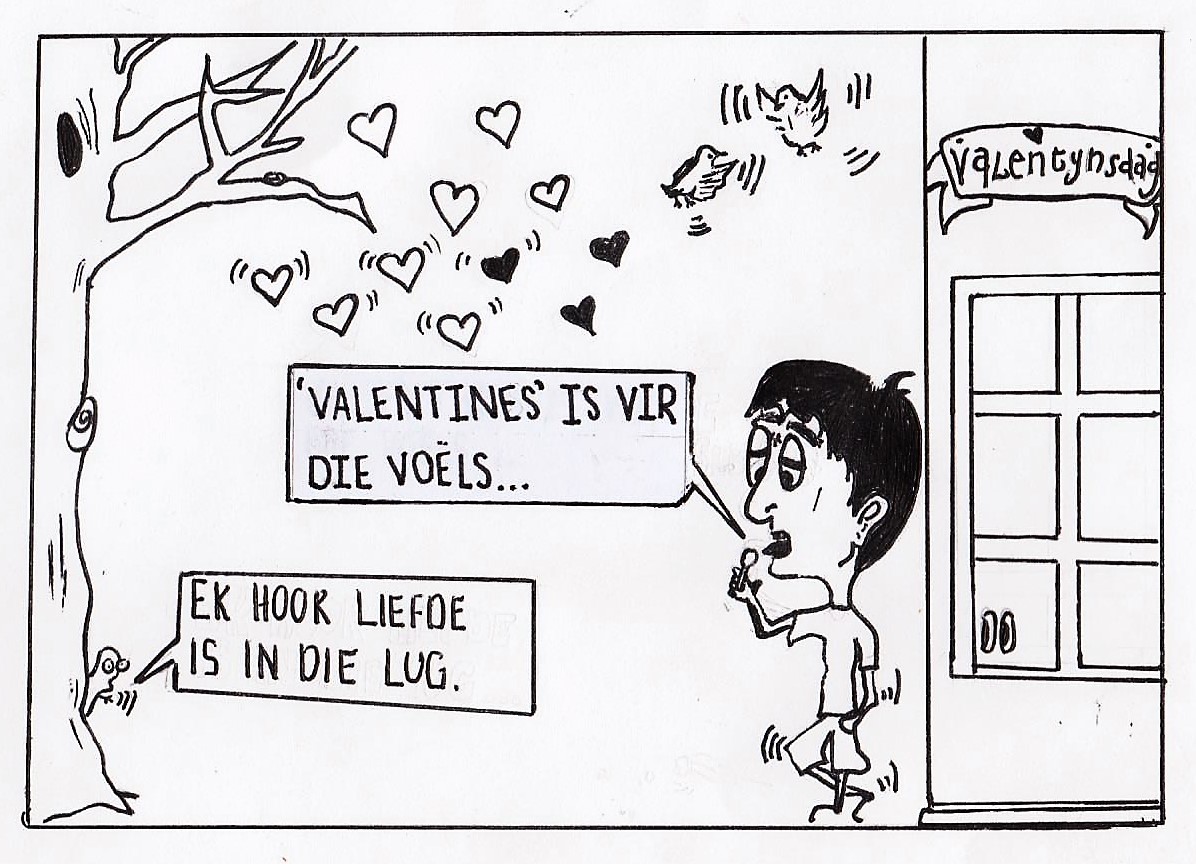 Valentynsdag
'VALENTINES' IS VIR
DIE VOËLS...
EK HOOR LIEFDE
IS IN DIE LUG.